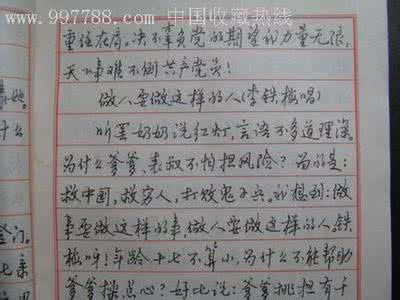 www.997788.com 中国收藏热线
重任在肩。决不辜负党的期望我力量无限，
天大事难不倒共产党员！
做人要做这样的人(李铁梅唱)
听罢奶奶说红灯，言语不多道理深。
为什么爹爹、表叔不怕担风险？为的是：
救中国，救穷人，打败鬼子兵。我想到：做
事要做这样的事，做人要做这样的人。铁
梅呀！年龄十七不算小，为什么不能帮助
爹爹操点心？好比说：爹爹挑担有千
她。
什么
登门。
亲